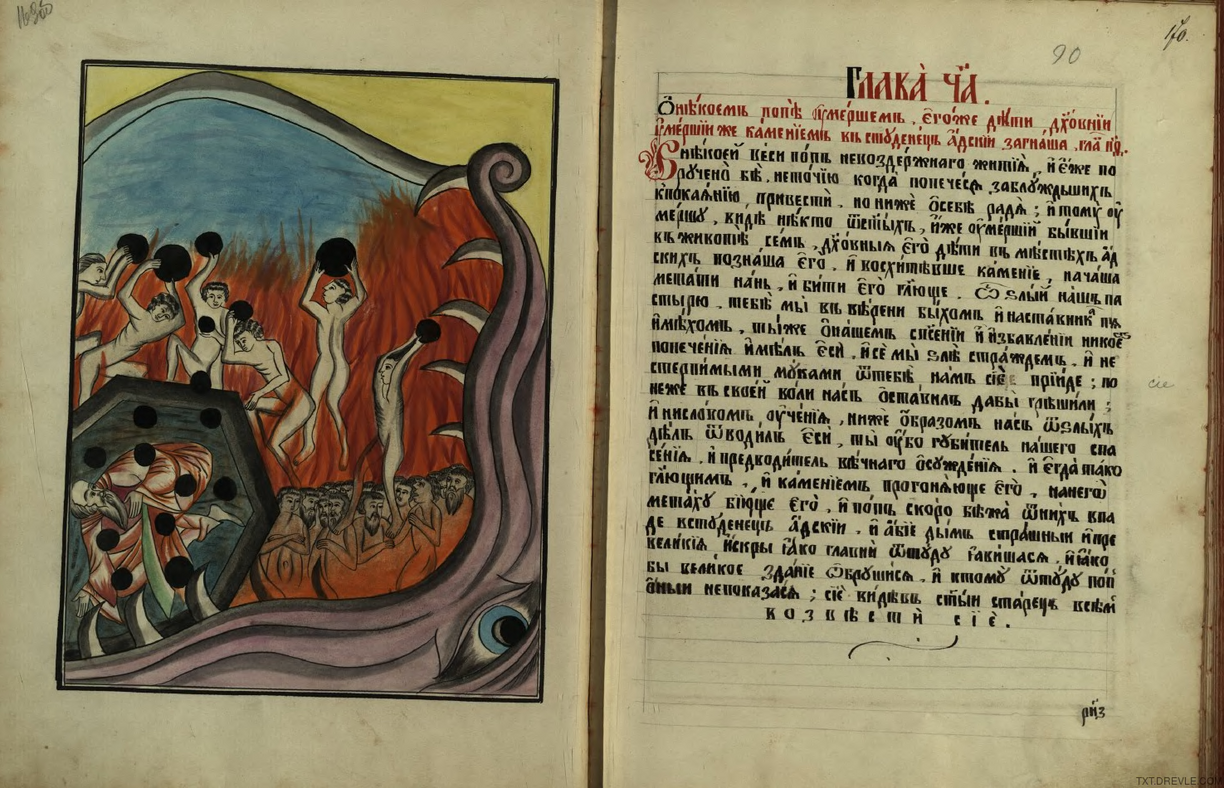 1635
170.
90
Глава ча.
Ѡ нѣкоемъ попѣ ᲂумершемъ, егоже дѣти дх҃овнїи
ᲂумершїи же каменїемъ въ студенецъ адскїй загнаша, гла҃ ч҃а.
В нѣкоей веси попъ невоздержнаго житїѧ, и еже по
ручено бѣ, неточїю когда попечесѧ заблуждьшихъ
кпокаѧнїю привести, но ниже ѡсебѣ радѧ; и тому ᲂу
мершу, видѣ нѣкто ѿст҃ыхъ, иже ᲂумершїи бывшїи
въ животѣ семъ, дх҃овныѧ его дѣти въ мѣстѣхъ ад
скихъ познаша его, и восхитѣвше каменїе, начаша
метати нань, и бити его гл҃юще, Ѽ ѕлый нашъ па
стырю, тебѣ мы въвѣрени быхомъ и наставника тѧ
имѣхомъ, тыже ѡнашемъ сп҃сенїи и избавленїи никоег
попеченїѧ имѣлъ еси, и се мы ѕлѣ страждемъ, и не
стерпимыми муками ѿтебѣ намъ сїе прїиде; по
неже въ своей воли насъ ѡставилъ дабы грѣшили;
и нисловомъ ᲂученїѧ, ниже ѡбразомъ насъ ѿѕлыхъ
дѣлъ ѿводилъ еси, ты ᲂубо губитель нашего спа
сенїѧ, и предводитель вѣчнаго ѡсужденїѧ, и егда тако
гл҃ющимъ, и каменїемъ прогонѧюще его, нанего
метаху бїюще его, и попъ скоро бѣжа ѿнихъ впа
де встуденецъ адскїй, и абїе дымъ страшныи и пре
великїѧ искры ꙗко главни ѿтуду ꙗвишасѧ, и ꙗко
бы великое зданїе ѡбрушисѧ, и ктому ѿтуду поп
ѡныи непоказасѧ; сїе видѣвъ ст҃ыи старецъ всѣм
возвѣсти сїе.
сїе
рч҃з
TXT.DREVLE.COM